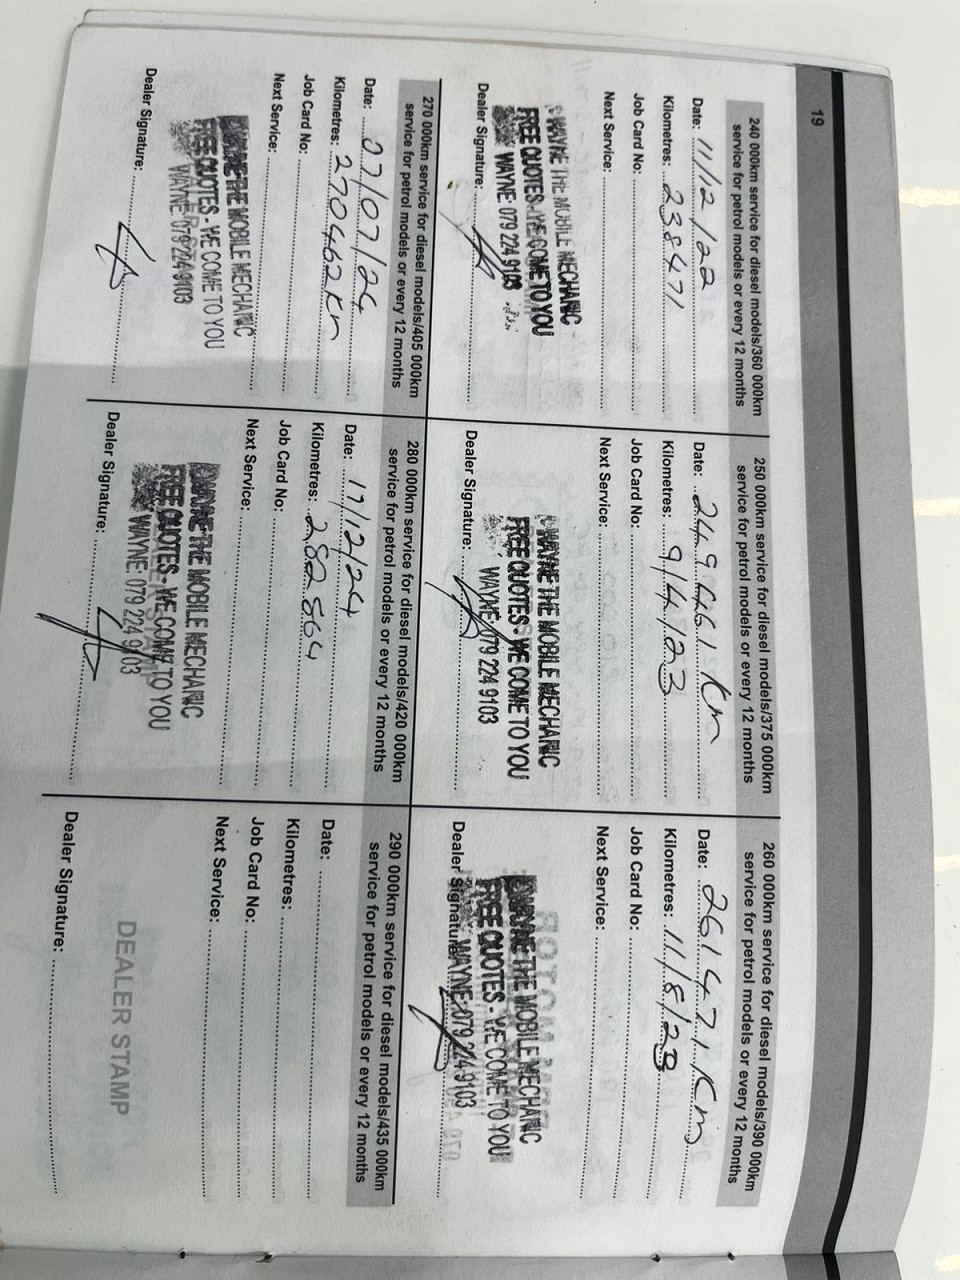 19
240 000km service for diesel models/360 000km
service for petrol models or every 12 months
Date: 11/12/22
Kilometres: 238471
Job Card No:
Next Service:
WAYNE THE MOBILE MECHANIC
FREE QUOTES - WE COME TO YOU
WAYNE: 079 224 9103
Dealer Signature:
250 000km service for diesel models/375 000km
service for petrol models or every 12 months
Date: 249 061 Km
Kilometres: 9/4/23
Job Card No:
Next Service:
WAYNE THE MOBILE MECHANIC
FREE QUOTES - WE COME TO YOU
WAYNE: 079 224 9103
Dealer Signature:
260 000km service for diesel models/390 000km
service for petrol models or every 12 months
Date: 261471 Km
Kilometres: 11/8/23
Job Card No:
Next Service:
WAYNE THE MOBILE MECHANIC
FREE QUOTES - WE COME TO YOU
WAYNE: 079 224 9103
Dealer Signature:
270 000km service for diesel models/405 000km
service for petrol models or every 12 months
Date: 07/07/24
Kilometres: 270462 Km
Job Card No:
Next Service:
WAYNE THE MOBILE MECHANIC
FREE QUOTES - WE COME TO YOU
WAYNE: 079 224 9103
Dealer Signature:
280 000km service for diesel models/420 000km
service for petrol models or every 12 months
Date: 17/12/24
Kilometres: 282 864
Job Card No:
Next Service:
WAYNE THE MOBILE MECHANIC
FREE QUOTES - WE COME TO YOU
WAYNE: 079 224 9103
Dealer Signature:
290 000km service for diesel models/435 000km
service for petrol models or every 12 months
Date:
Kilometres:
Job Card No:
Next Service:
DEALER STAMP
Dealer Signature: